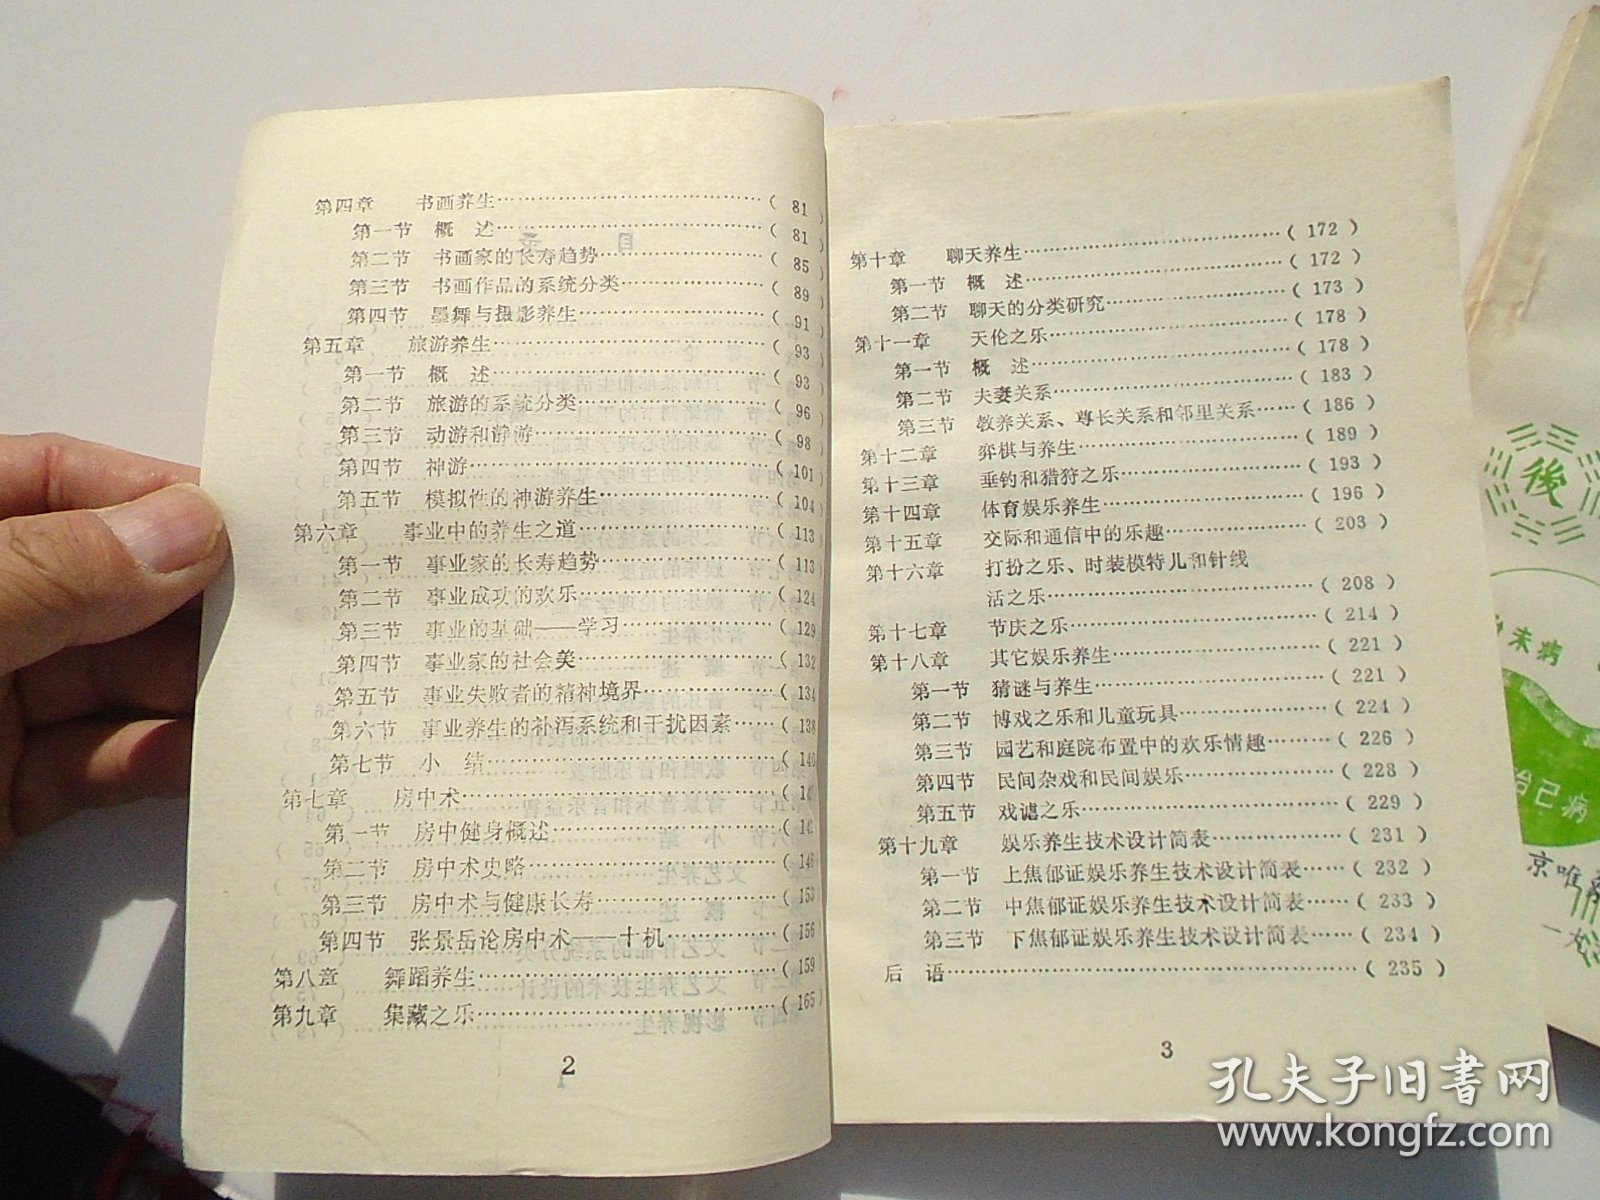 第四章 书画养生……………………………………( 81 )
第一节 概 述……………………………………( 81 )
第二节 书画家的长寿趋势……………………( 85 )
第三节 书画作品的系统分类…………………( 89 )
第四节 墨舞与摄影养生………………………( 91 )
第五章 旅游养生……………………………………( 93 )
第一节 概 述……………………………………( 93 )
第二节 旅游的系统分类………………………( 96 )
第三节 动游和静游……………………………( 98 )
第四节 神游……………………………………( 101 )
第五节 模拟性的神游养生……………………( 104 )
第六章 事业中的养生之道…………………………( 113 )
第一节 事业家的长寿趋势……………………( 113 )
第二节 事业成功的欢乐………………………( 124 )
第三节 事业的基础——学习…………………( 129 )
第四节 事业家的社会美………………………( 132 )
第五节 事业失败者的精神境界………………( 134 )
第六节 事业养生的补泻系统和干扰因素……( 138 )
第七节 小 结……………………………………( 140 )
第七章 房中术………………………………………(
第一节 房中健身概述…………………………( 142 )
第二节 房中术史略……………………………( 146 )
第三节 房中术与健康长寿……………………( 153 )
第四节 张景岳论房中术——十机……………( 156 )
第八章 舞蹈养生……………………………………( 159 )
第九章 集藏之乐……………………………………( 165 )
2
第十章 聊天养生……………………………………( 172 )
第一节 概 述……………………………………( 172 )
第二节 聊天的分类研究………………………( 173 )
第十一章 天伦之乐…………………………………( 178 )
第一节 概 述……………………………………( 178 )
第二节 夫妻关系………………………………( 183 )
第三节 教养关系、尊长关系和邻里关系……( 186 )
第十二章 弈棋与养生………………………………( 189 )
第十三章 垂钓和猎狩之乐…………………………( 193 )
第十四章 体育娱乐养生……………………………( 196 )
第十五章 交际和通信中的乐趣……………………( 203 )
第十六章 打扮之乐、时装模特儿和针线
活之乐……………………………………( 208 )
第十七章 节庆之乐…………………………………( 214 )
第十八章 其它娱乐养生……………………………( 221 )
第一节 猜谜与养生……………………………( 221 )
第二节 博戏之乐和儿童玩具…………………( 224 )
第三节 园艺和庭院布置中的欢乐情趣………( 226 )
第四节 民间杂戏和民间娱乐…………………( 228 )
第五节 戏谑之乐………………………………( 229 )
第十九章 娱乐养生技术设计简表…………………( 231 )
第一节 上焦郁证娱乐养生技术设计简表……( 232 )
第二节 中焦郁证娱乐养生技术设计简表……( 233 )
第三节 下焦郁证娱乐养生技术设计简表……( 234 )
后 语…………………………………………………( 235 )
3
後
未病
治己病
京唯
孔夫子旧書网
www.kongfz.com